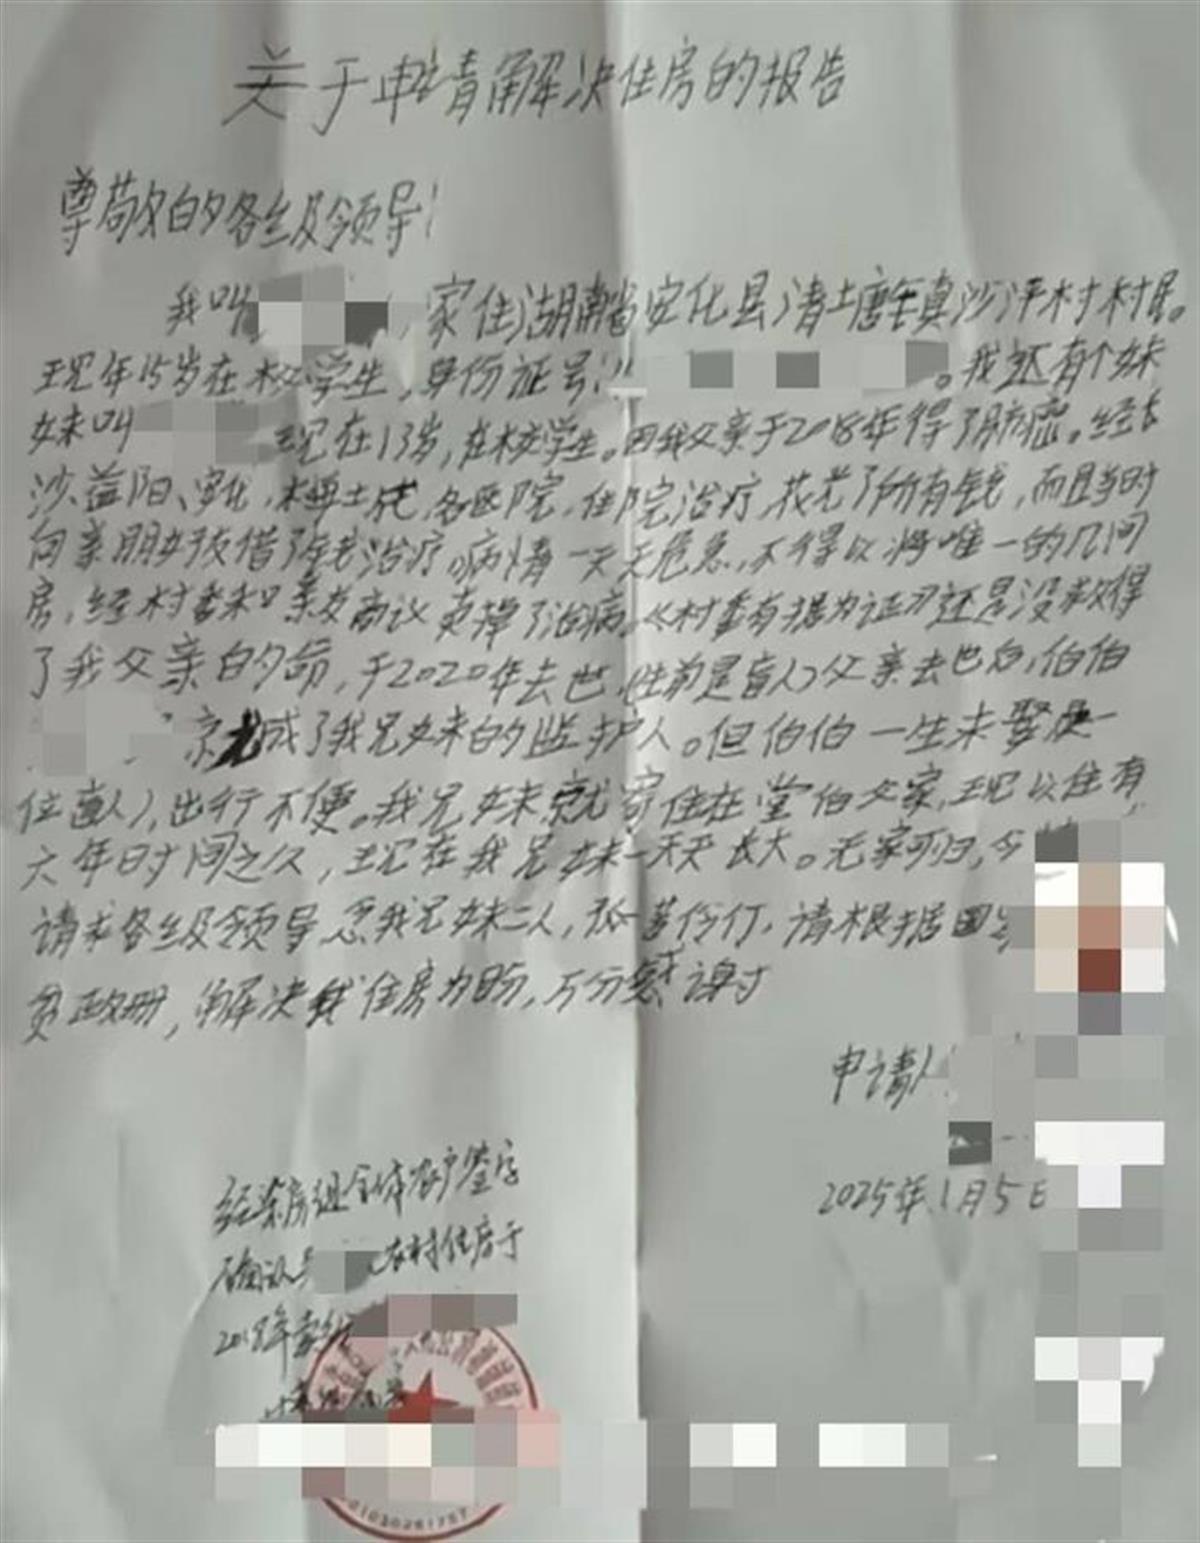 关于申请解决住房的报告
尊敬的各级领导!
我叫 ,家住湖南省安化县清塘镇沙坪村村民。
现年15岁在校学生,身份证号:。我还有个妹
妹叫 现在13岁,在校学生。因我父亲于2018年得了肺癌。经长
沙、益阳、安化, 各医院,住院治疗,花光了所有钱,而且当时
向亲朋好孩借了钱治疗。病情一天天危急,不得以将唯一的几间
房,经村 和亲友商议卖掉了治病。《村委有据为证》还是没救得
了我父亲的命,于2020年去世,(生前是盲人)父亲去世后,伯伯
成了我兄妹的监护人。但伯伯一生未娶是一
位盲人),出行不便。我兄妹就 住在堂伯父家,现以住有
六年时间之久,现在我兄妹一天天长大。无家可归,今
请求各级领导念我兄妹二人,孤苦伶仃,请根据国家
贫政册,解决我住房为盼,万分感谢
申请人
2025年1月5日
经 房组全体农户签字
确认 农村住房于
2018年卖给
21030261787